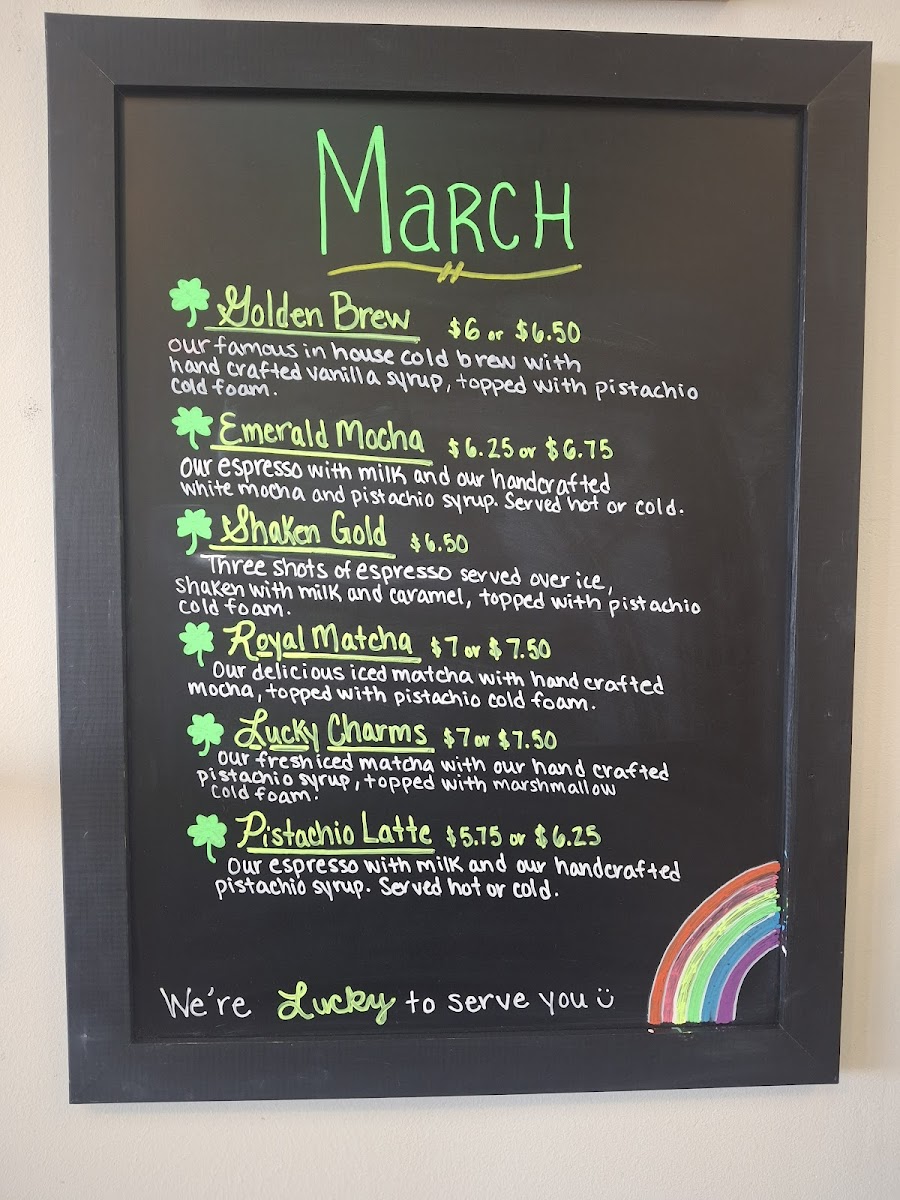 MaRCH
Golden Brew $6 or $6.50
our famous in house cold brew with
hand crafted vanilla syrup, topped with pistachio
cold foam.
Emerald Mocha $6.25 or $6.75
our espresso with milk and our handcrafted
white mocha and pistachio syrup. Served hot or cold.
Shaken Gold $6.50
Three shots of espresso served over ice,
shaken with milk and caramel, topped with pistachio
cold foam.
Royal Matcha $7 or $7.50
Our delicious iced matcha with hand crafted
mocha, topped with pistachio cold foam.
Lucky Charms $7 or $7.50
our fresh iced matcha with our hand crafted
pistachio syrup, topped with marshmallow
cold foam.
Pistachio Latte $5.75 or $6.25
Our espresso with milk and our handcrafted
pistachio syrup. Served hot or cold.
We're Lucky to serve you